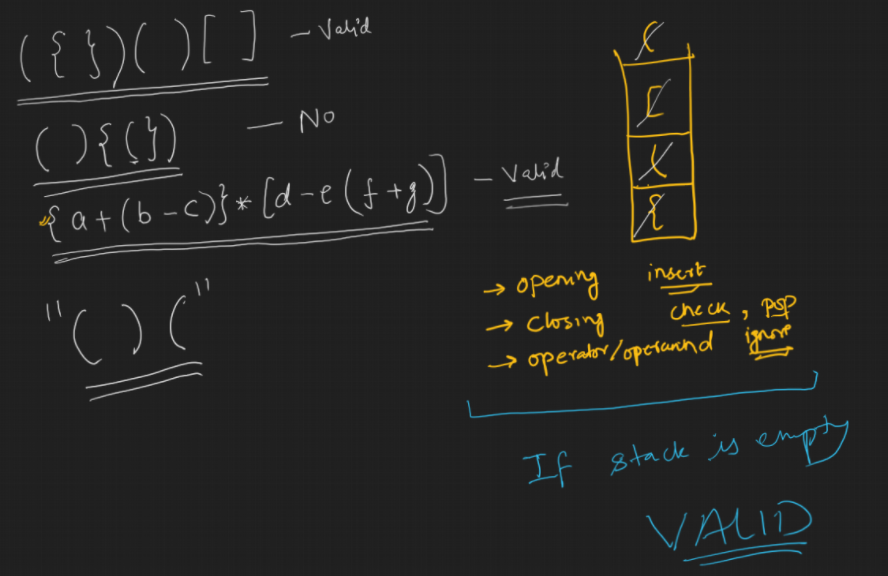 ({})()[] - Valid
(){(}) - No
{a+(b-c)}*[d-e(f+g)] - Valid
"()("
(
[
(
{
→ opening insert
→ closing check, pop
→ operator/operand ignore
If stack is empty
VALID